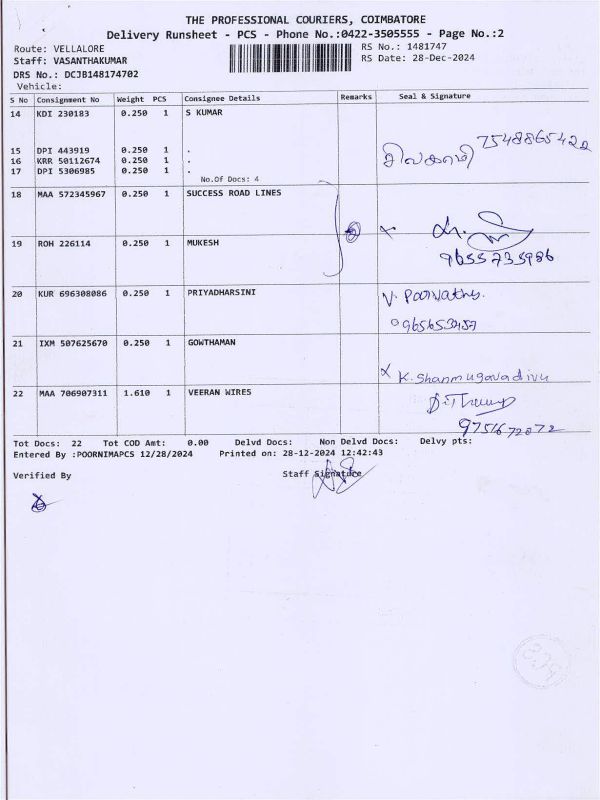 THE PROFESSIONAL COURIERS, COIMBATORE
Delivery Runsheet - PCS - Phone No.:0422-3505555 - Page No.:2
Route: VELLALORE
RS No.: 1481747
Staff: VASANTHAKUMAR
RS Date: 28-Dec-2024
DRS No.: DCJB148174702
Vehicle:
S No Consignment No Weight PCS Consignee Details Remarks Seal & Signature
14 KDI 230183 0.250 1 S KUMAR
7548865422
15 DPI 443919 0.250 1 .
16 KRR 50112674 0.250 1 .
17 DPI 5306985 0.250 1 .
No.Of Docs: 4
18 MAA 572345967 0.250 1 SUCCESS ROAD LINES
19 ROH 226114 0.250 1 MUKESH
9655735986
20 KUR 696308086 0.250 1 PRIYADHARSINI
21 IXM 507625670 0.250 1 GOWTHAMAN
K. Shanmugavadivu
22 MAA 706907311 1.610 1 VEERAN WIRES
9751672072
Tot Docs: 22 Tot COD Amt: 0.00 Delvd Docs: Non Delvd Docs: Delvy pts:
Entered By :POORNIMAPCS 12/28/2024 Printed on: 28-12-2024 12:42:43
Verified By
Staff Signature